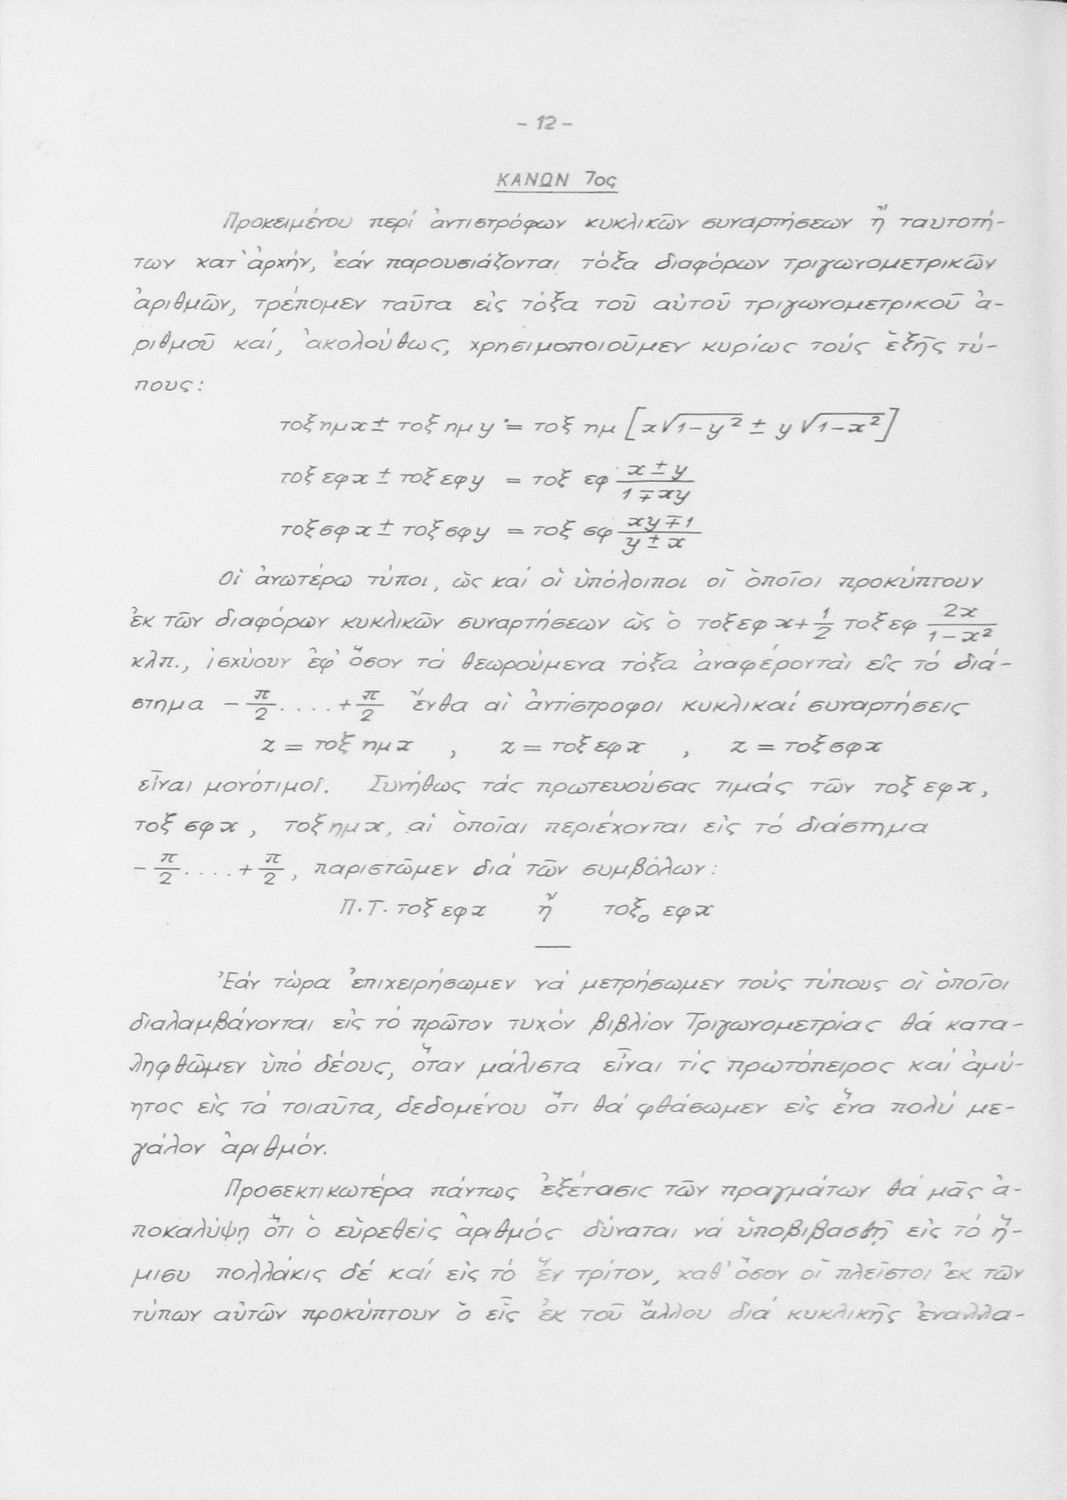 - 12 -
ΚΑΝΩΝ 7ος
Προκειμένου περί ἀντιστρόφων κυκλικῶν συναρτήσεων ἤ ταυτοτή-
των κατ' ἀρχήν, ἐάν παρουσιάζονται τόξα διαφόρων τριγωνομετρικῶν
ἀριθμῶν, τρέπομεν ταῦτα εἰς τόξα τοῦ αὐτοῦ τριγωνομετρικοῦ ἀ-
ριθμοῦ καί, ἀκολούθως, χρησιμοποιοῦμεν κυρίως τούς ἑξῆς τύ-
πους:
τοξ ημ x ± τοξ ημ y = τοξ ημ [x√1-y² ± y√1-x²]
τοξ εφ x ± τοξ εφ y = τοξ εφ (x ± y)/(1 ∓ xy)
τοξ σφ x ± τοξ σφ y = τοξ σφ (xy ∓ 1)/(y ± x)
Οἱ ἀνωτέρω τύποι, ὡς καί οἱ ὑπόλοιποι οἱ ὁποῖοι προκύπτουν
ἐκ τῶν διαφόρων κυκλικῶν συναρτήσεων ὡς ὁ τοξ εφ x + 1/2 τοξ εφ 2x/(1-x²)
κλπ., ἰσχύουν ἐφ' ὅσον τά θεωρούμενα τόξα ἀναφέρονται εἰς τό διά-
στημα - π/2 .... + π/2 ἔνθα αἱ ἀντίστροφοι κυκλικαί συναρτήσεις
z = τοξ ημ x , z = τοξ εφ x , z = τοξ σφ x
εἶναι μονότιμοι. Συνήθως τάς πρωτευούσας τιμάς τῶν τοξ εφ x,
τοξ σφ x, τοξ ημ x, αἱ ὁποῖαι περιέχονται εἰς τό διάστημα
- π/2 .... + π/2, παριστῶμεν διά τῶν συμβόλων:
Π.Τ. τοξ εφ x ἤ τοξ₀ εφ x
Ἐάν τώρα ἐπιχειρήσωμεν νά μετρήσωμεν τούς τύπους οἱ ὁποῖοι
διαλαμβάνονται εἰς τό πρῶτον τυχόν βιβλίον Τριγωνομετρίας θά κατα-
ληφθῶμεν ὑπό δέους, ὅταν μάλιστα εἶναι τίς πρωτόπειρος καί ἀμύ-
ητος εἰς τά τοιαῦτα, δεδομένου ὅτι θά φθάσωμεν εἰς ἕνα πολύ με-
γάλον ἀριθμόν.
Προσεκτικωτέρα πάντως ἐξέτασις τῶν πραγμάτων θά μᾶς ἀ-
ποκαλύψῃ ὅτι ὁ εὑρεθείς ἀριθμός δύναται νά ὑποβιβασθῇ εἰς τό ἥ-
μισυ πολλάκις δέ καί εἰς τό ἕν τρίτον, καθ' ὅσον οἱ πλεῖστοι ἐκ τῶν
τύπων αὐτῶν προκύπτουν ὁ εἷς ἐκ τοῦ ἄλλου διά κυκλικῆς ἐναλλα-